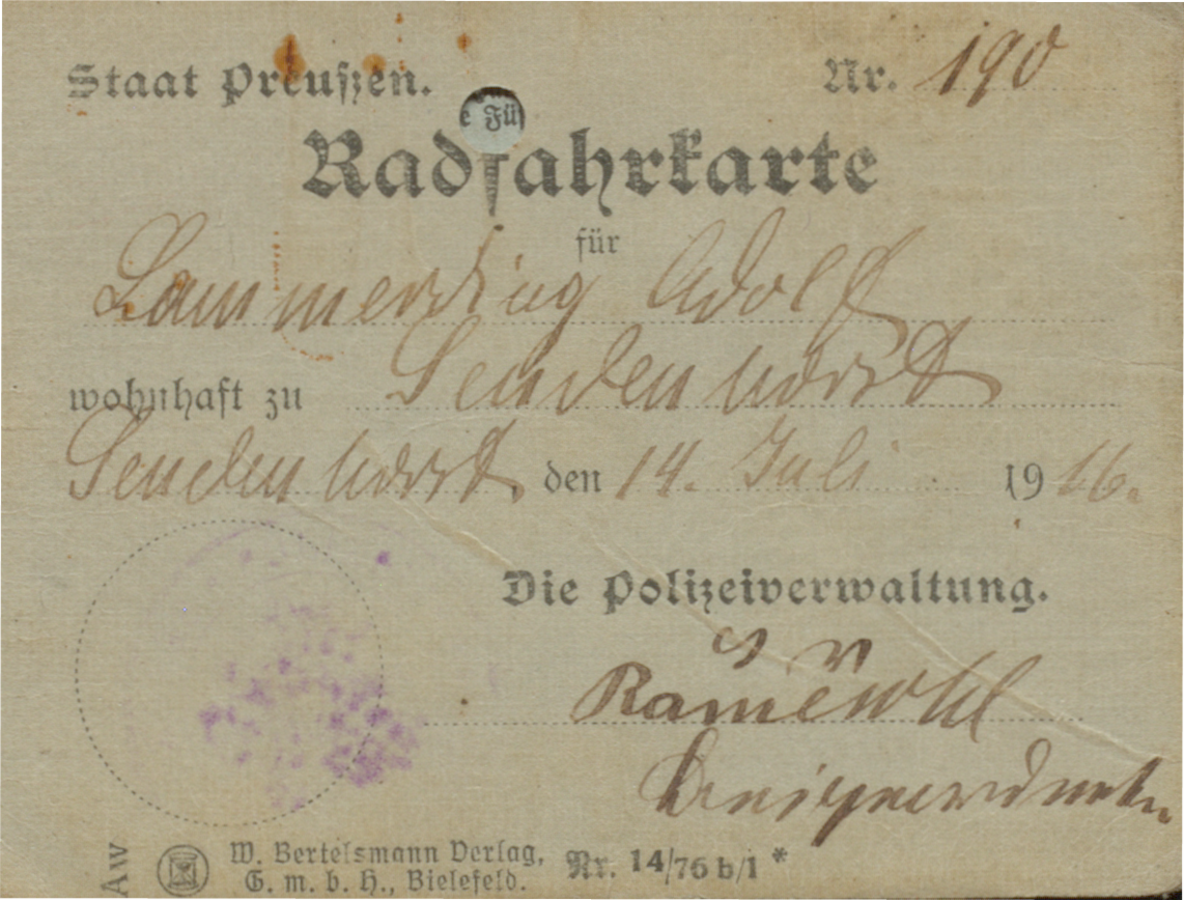 Staat Preußen. Nr. 190
e Fü
Radfahrkarte
für
Lammerding Adolf
wohnhaft zu Sendenhorst
Sendenhorst, den 14. Juli 1916.
Die Polizeiverwaltung.
J V
Beigeordneter
W. Bertelsmann Verlag,
G. m. b. H., Bielefeld. Nr. 14/76 b/1 *
Aw